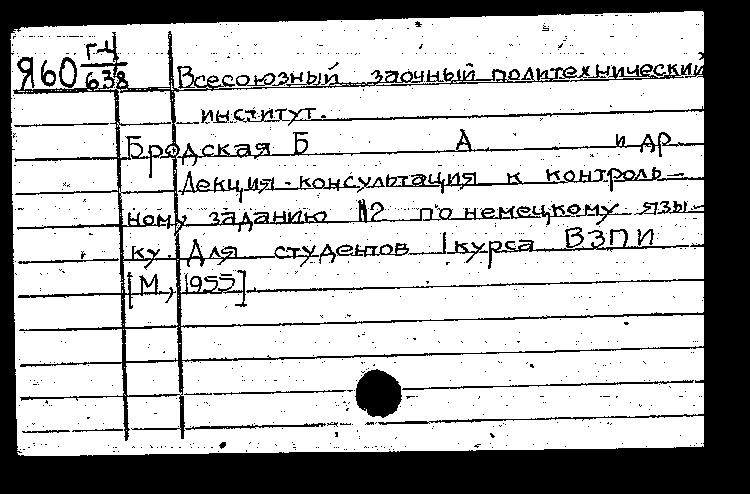 Я60 Г-4/638 Всесоюзный заочный политехнический
институт.
Бродская Б А и др
Лекция-консультация к контроль-
ному заданию №2 по немецкому язы-
ку. Для студентов I курса ВЗПИ
[М, 1955].